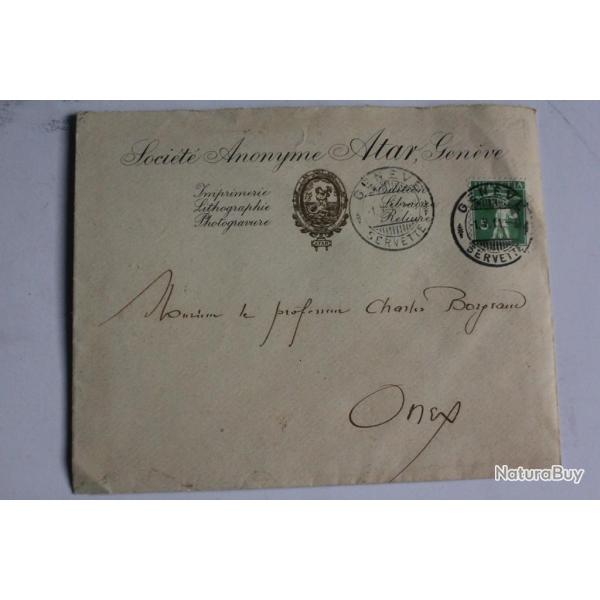 Société Anonyme Atar, Genève
Imprimerie
Lithographie
Photogravure
ATAR
Edition
Librairie
Reliure
GENÈVE
SERVETTE
GENÈVE
SERVETTE
Monsieur le professeur Charles Borgeaud
Onex
NaturaBuy